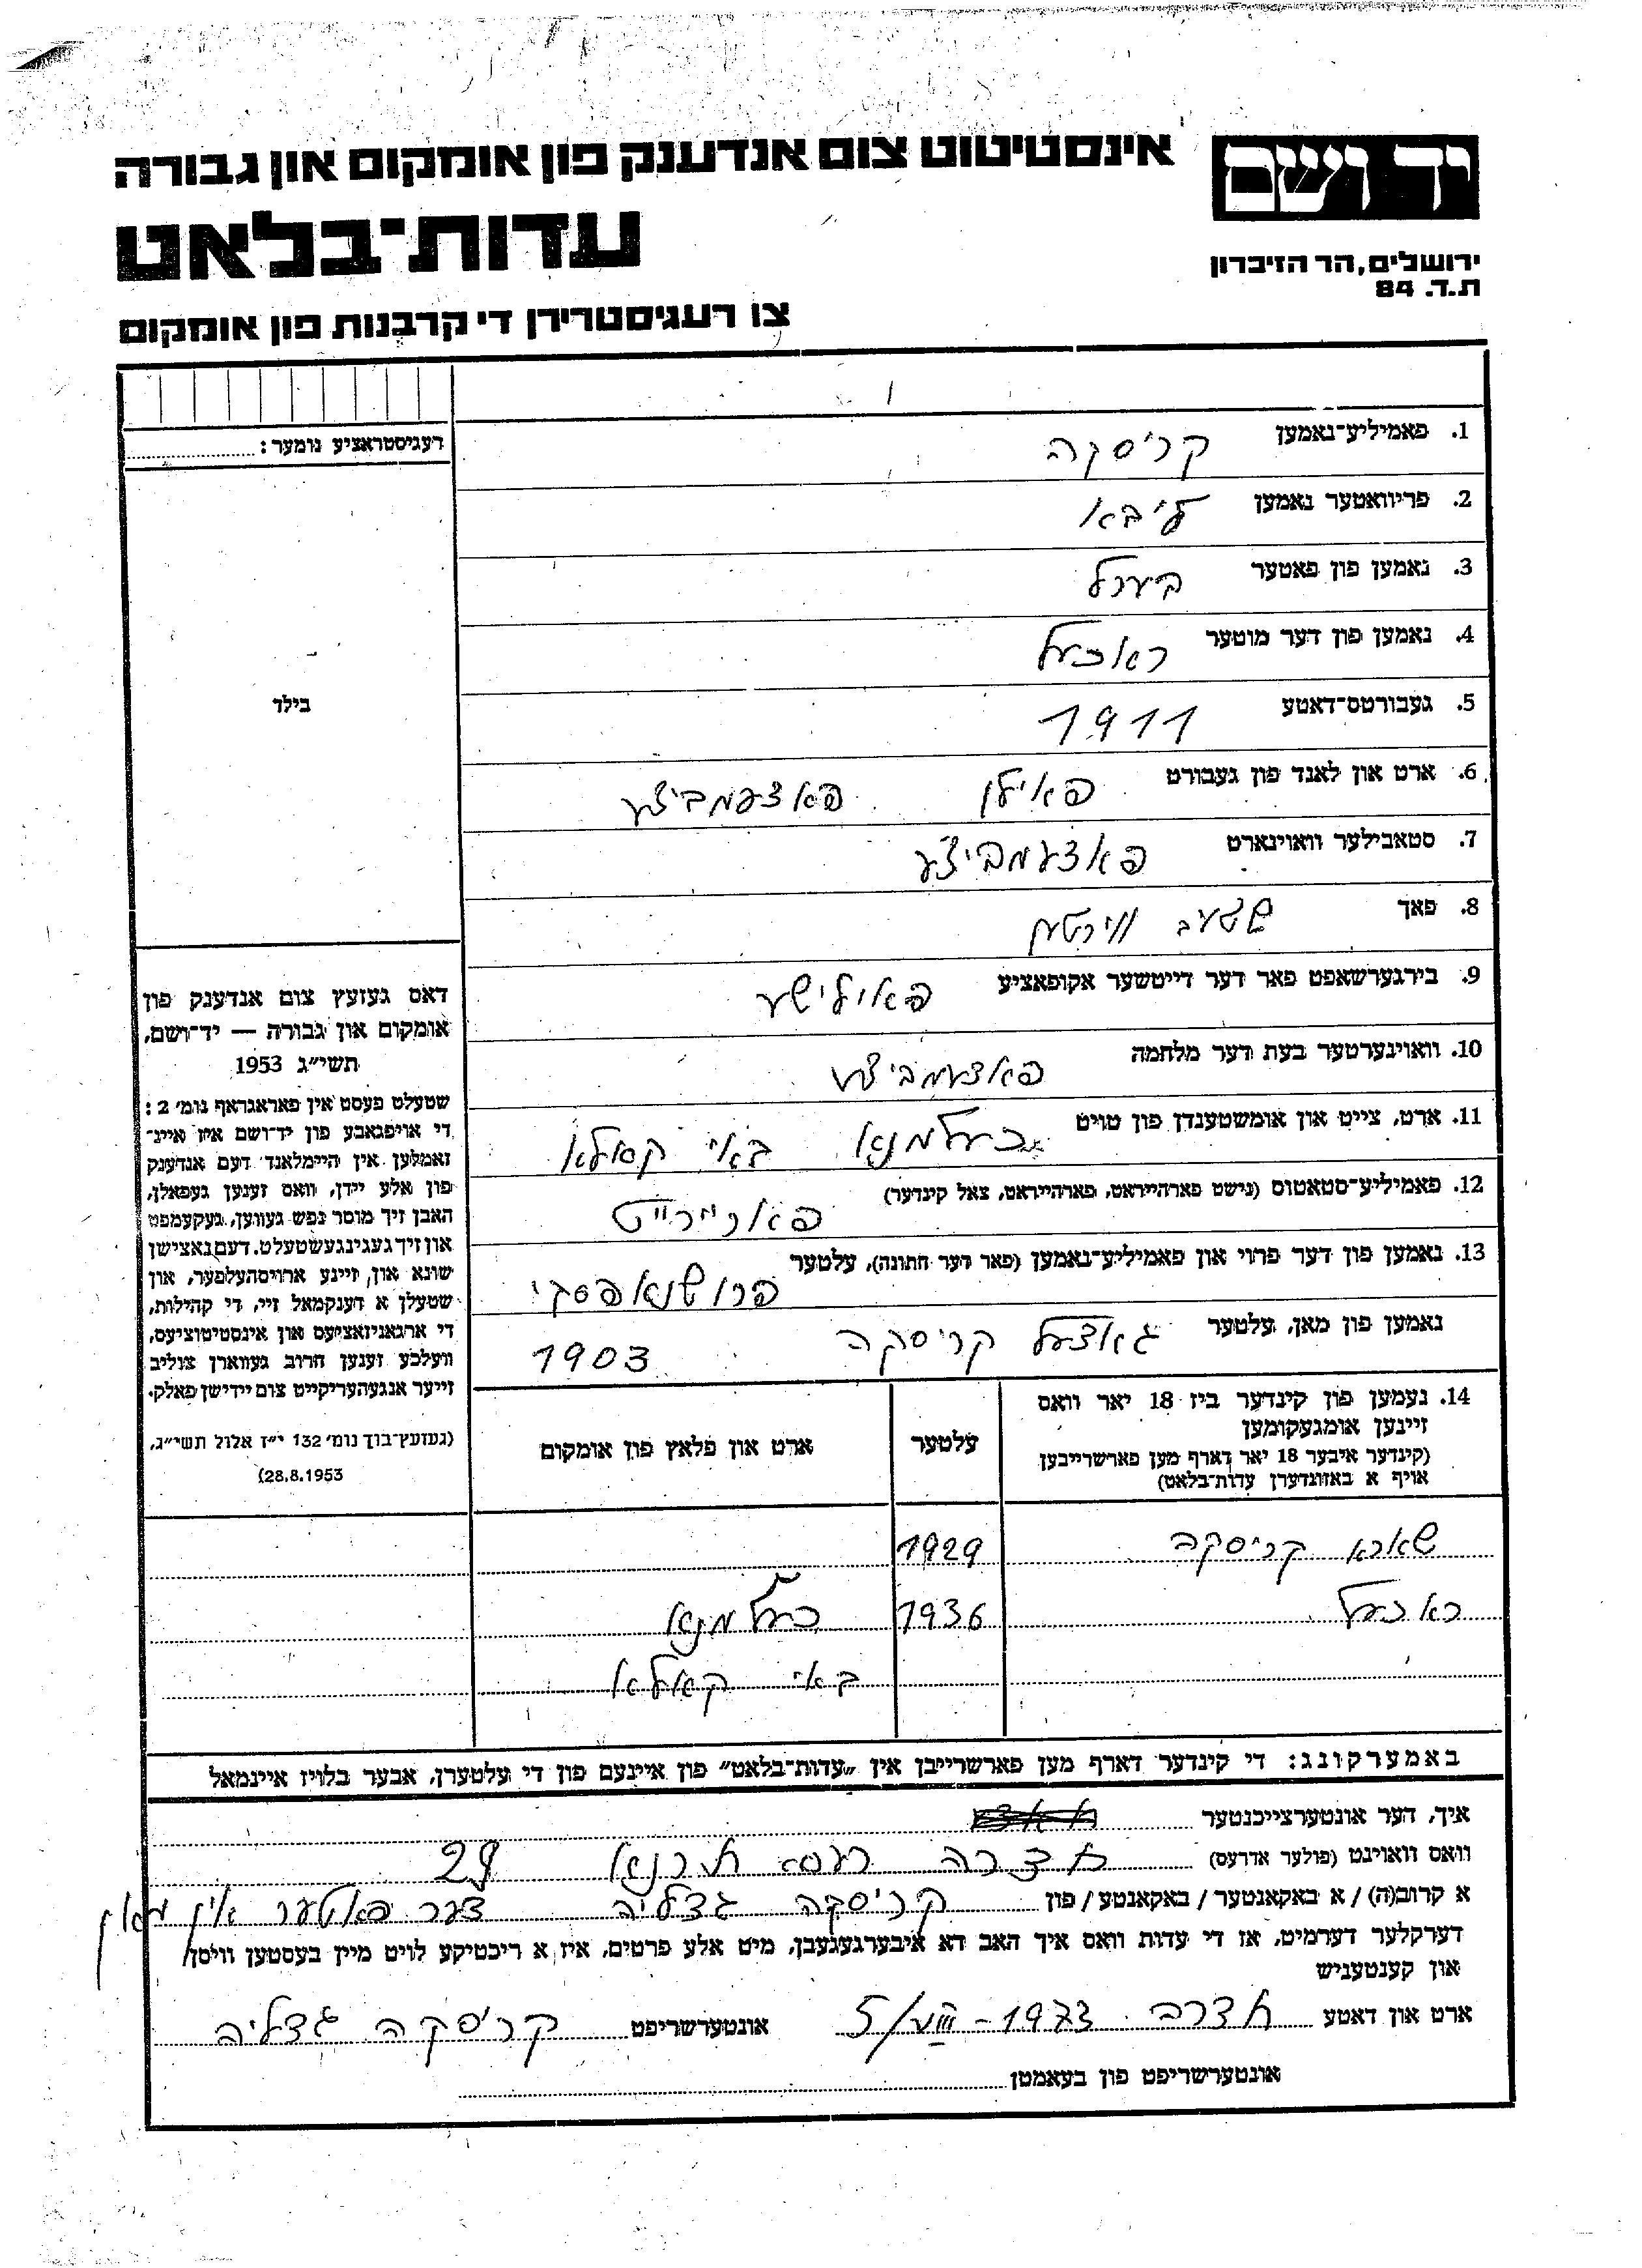 יד ושם
אינסטיטוט צום אנדענק פון אומקום און גבורה
עדות־בלאט
ירושלים, הר הזיכרון
ת.ד. 84
צו רעגיסטרירן די קרבנות פון אומקום
רעגיסטראציע נומער:
1. פאמיליע־נאמען קריסקה
2. פריוואטער נאמען ליבא
3. נאמען פון פאטער בערל
4. נאמען פון דער מוטער ראכעל
5. געבורטס־דאטע 1911
6. ארט און לאנד פון געבורט פאילן פאדעמביצע
7. סטאבילער וואוינארט פאדעמביצע
8. פאך ווירטין
9. בירגערשאפט פאר דער דייטשער אקופאציע פאולישע
10. וואוינערטער בעת דער מלחמה פאדעמביצע
11. ארט, צייט און אומשטענדן פון טויט כעלמנא באי קאולא
12. פאמיליע־סטאטוס (נישט פארהייראט, פארהייראט, צאל קינדער)
13. נאמען פון דער פרוי און פאמיליע־נאמען (פאר דער חתונה), עלטער
נאמען פון מאן, עלטער גאצעל קריסקה 1903
בילד
דאס געזעץ צום אנדענק פון
אומקום און גבורה — יד־ושם,
תשי״ג 1953
שטעלט פעסט אין פאראגראף נומ׳ 2:
די אויפגאבע פון יד־ושם איז איינ־
זאמלען אין היימלאנד דעם אנדענק
פון אלע יידן, וואס זענען געפאלן,
האבן זיך מוסר נפש געווען, געקעמפט
און זיך געגינגעשטעלט דעם נאצישן
שונא און זיינע ארויסהעלפער, און
שטעלן א דענקמאל זיי, די קהילות,
די ארגאניזאציעס און אינסטיטוציעס,
וועלכע זענען חרוב געווארן צוליב
זייער אנגעהעריקייט צום יידישן פאלק.
(געזעץ־בוך נומ׳ 132 י״ז אלול תשי״ג,
28.8.1953)
14. נעמען פון קינדער ביז 18 יאר וואס
זיינען אומגעקומען
(קינדער איבער 18 יאר דארף מען פארשרייבן
אויף א באזונדערן עדות־בלאט)
עלטער
ארט און פלאץ פון אומקום
שארא קריסקה 1929
ראכעל 1936 כעלמנא
באי קאולא
באמערקונג: די קינדער דארף מען פארשרייבן אין „עדות־בלאט״ פון איינעם פון די עלטערן, אבער בלויז איינמאל
איך, דער אונטערצייכנטער
וואס וואוינט (פולער אדרעס) 29
א קרוב(ה) / א באקאנטער / באקאנטע / פון קריסקה גדליה דער פאטער אין מאן
דערקלער דערמיט, אז די עדות וואס איך האב דא איבערגעגעבן, מיט אלע פרטים, איז א ריכטיקע לויט מיין בעסטען וויסן
און קענטעניש
ארט און דאטע 5/VIII-1973 אונטערשריפט קריסקה גדליה
אונטערשריפט פון בעאמטן